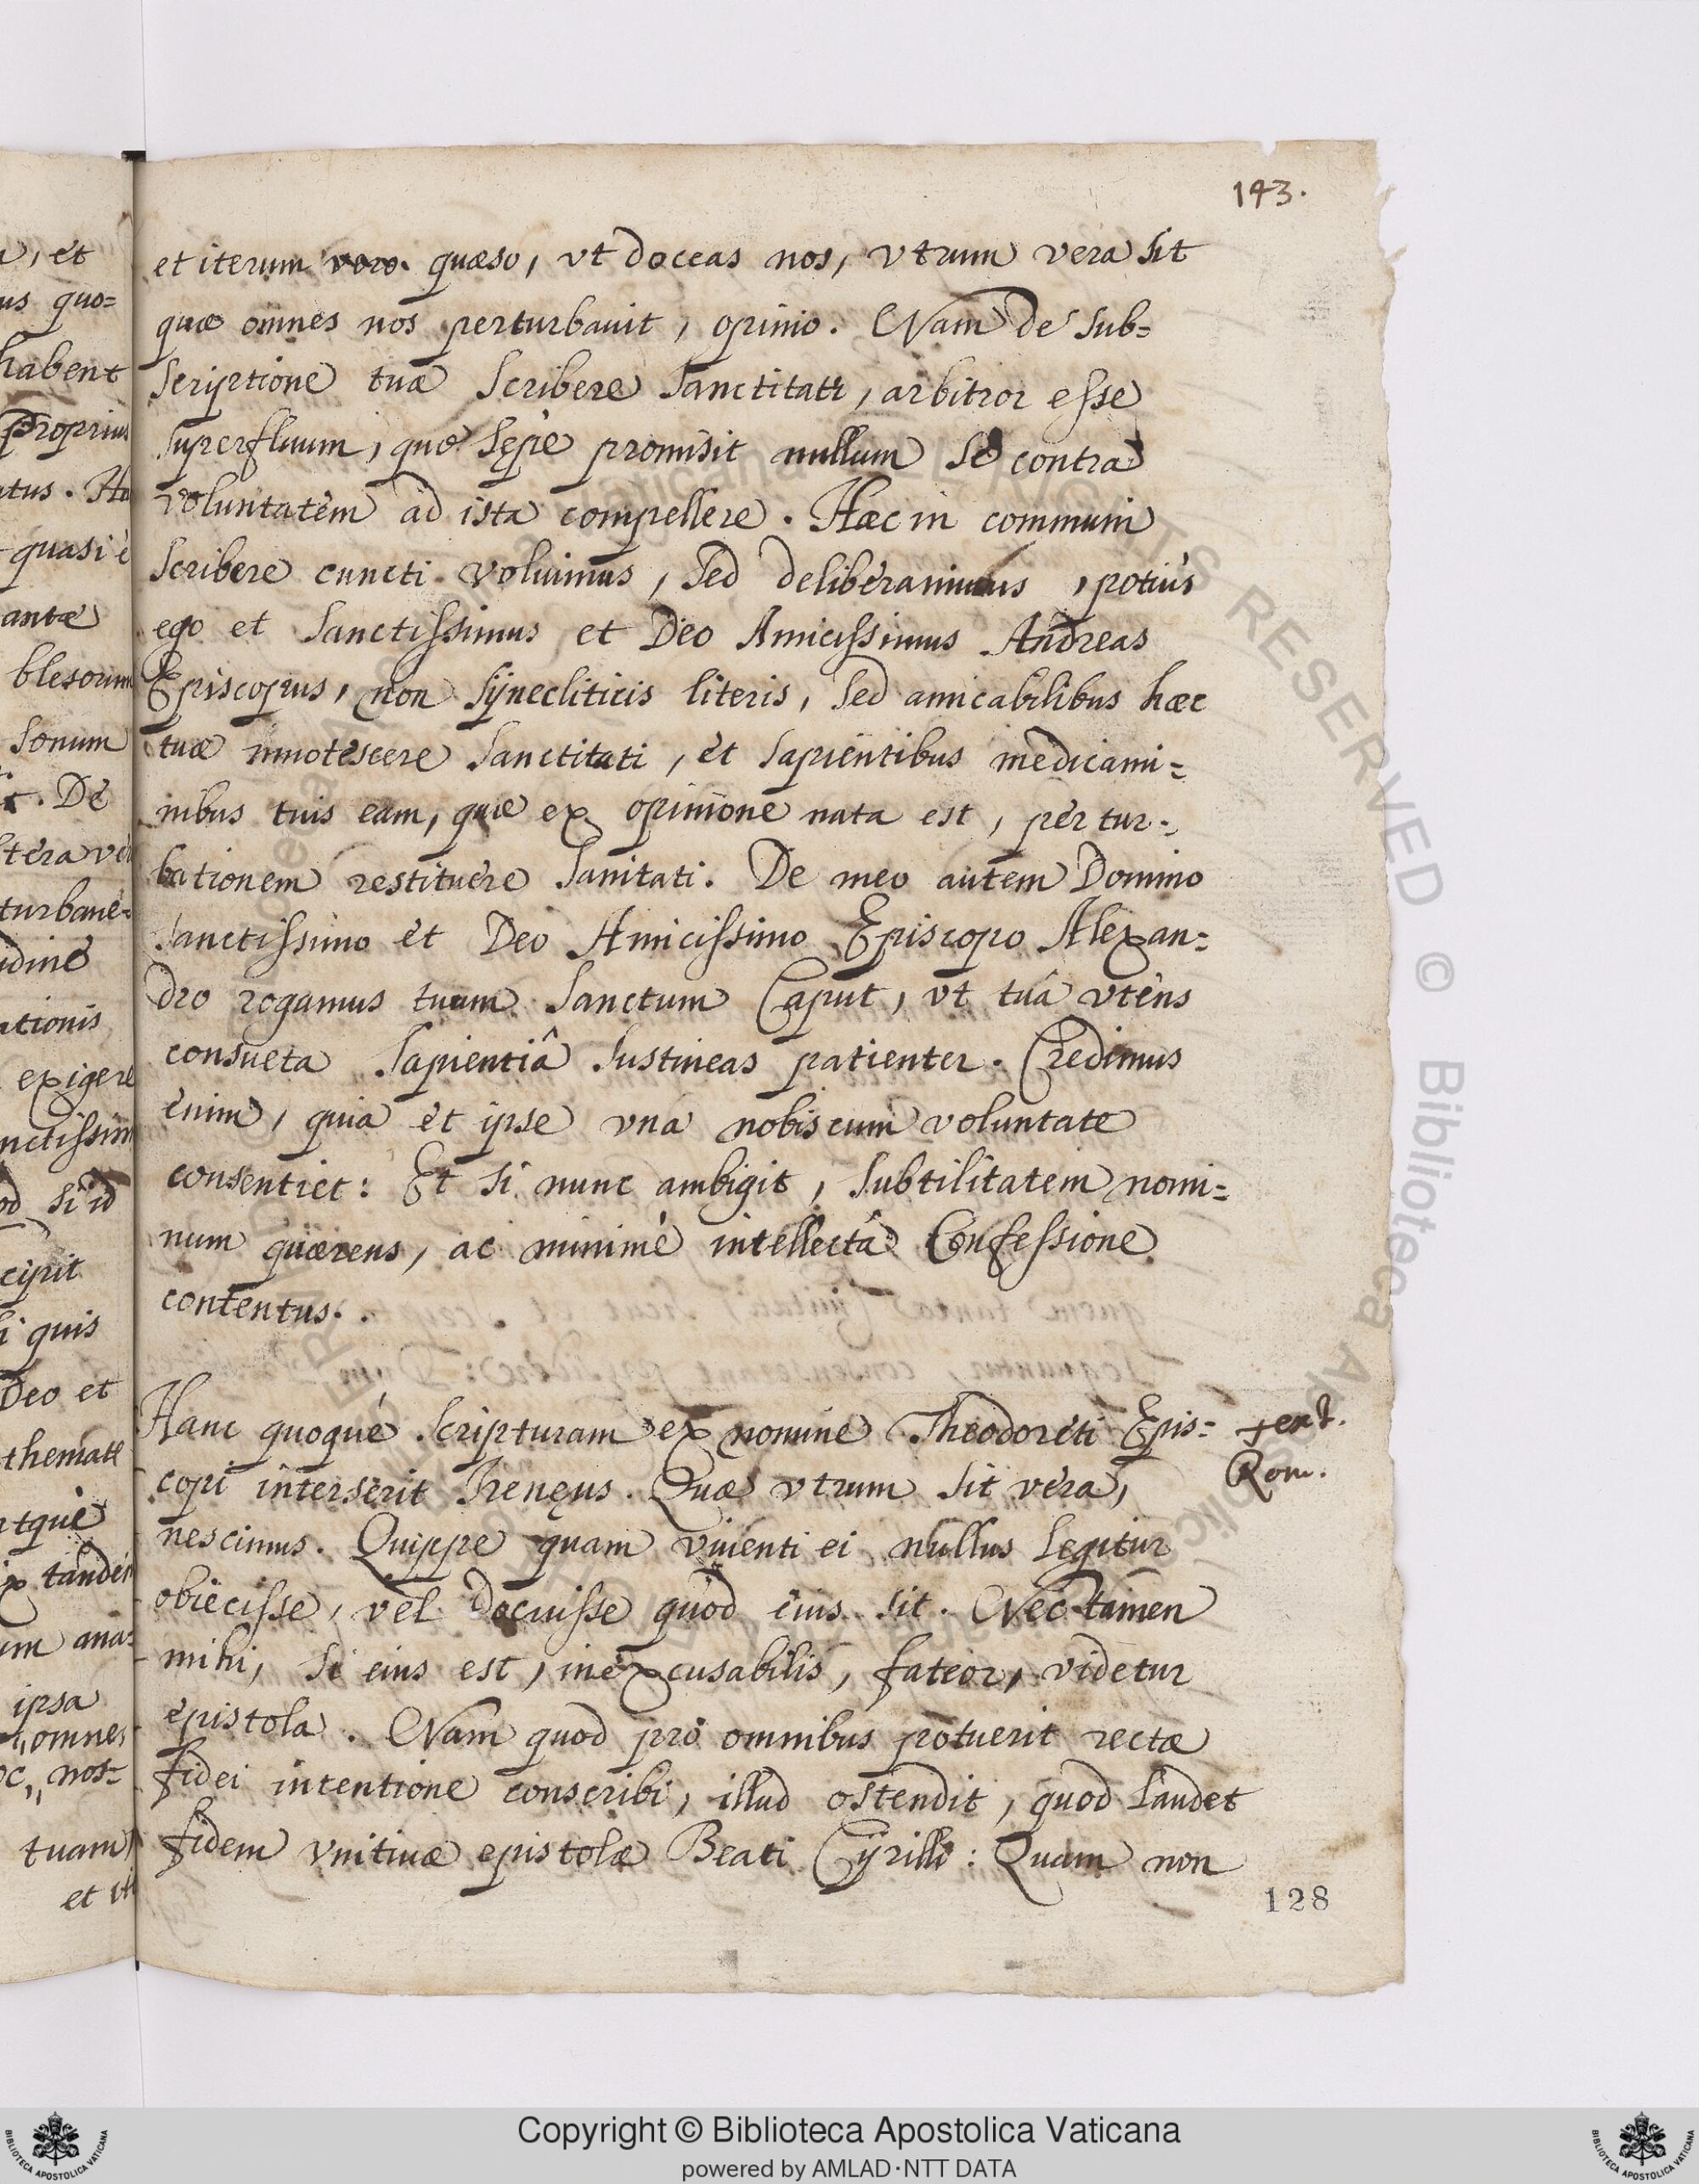 143.
et iterum quæso, vt doceas nos, vtrum vera sit
quæ omnes nos perturbauit, opinio. Nam de sub=
scriptione tuæ scribere sanctitati, arbitror esse
superfluum, quæ sępè promisit nullum se contra
voluntatem ad ista compellere. Hæc in communi
scribere cuncti voluimus, sed deliberauimus, potiùs
ego et sanctissimus et Deo Amicissimus Andreas
Episcopus, non sÿnecliticis literis, sed amicabilibus hæc
tuæ innotescere sanctitati, et sapientibus medicami=
nibus tuis eam, quæ ex opinione nata est, pertur=
bationem restituere sanitati. De meo autem Domino
sanctissimo et Deo Amicissimo Episcopo Alexan=
dro rogamus tuum sanctum Caput, vt tuâ vtens
consueta sapientiâ sustineas patienter. Credimus
enim, quia et ipse vna nobiscum voluntate
consentiet: Et si nunc ambigit, subtilitatem nomi=
num quærens, ac minimè intellectâ Confessione
contentus.
Hanc quoquè scripturam ex nomine Theodoreti Epis=
copi interserit Irenęus. Quæ vtrum sit vera,
nescimus. Quippe quam viuenti ei nullus legitur
obiecisse, vel docuisse quod eius sit. Nec tamen
mihi, si eius est, inexcusabilis, fateor, videtur
epistola. Nam quod pro omnibus potuerit rectæ
fidei intentione conscribi, illud ostendit, quod laudet
fidem vnitiuæ epistolæ Beati Cÿrilli: Quam non
Rom.
128
a, et
us quo=
habent
Proprius
quasi è
antæ
blesorum
sonum
De
idine
ationis
exigere
si id
cipit
i quis
Deo et
ipsa
omnes
nos=
tuam
et
Copyright © Biblioteca Apostolica Vaticana
powered by AMLAD·NTT DATA
BIBLIOTECA APOSTOLICA VATICANA
BIBLIOTECA APOSTOLICA VATICANA